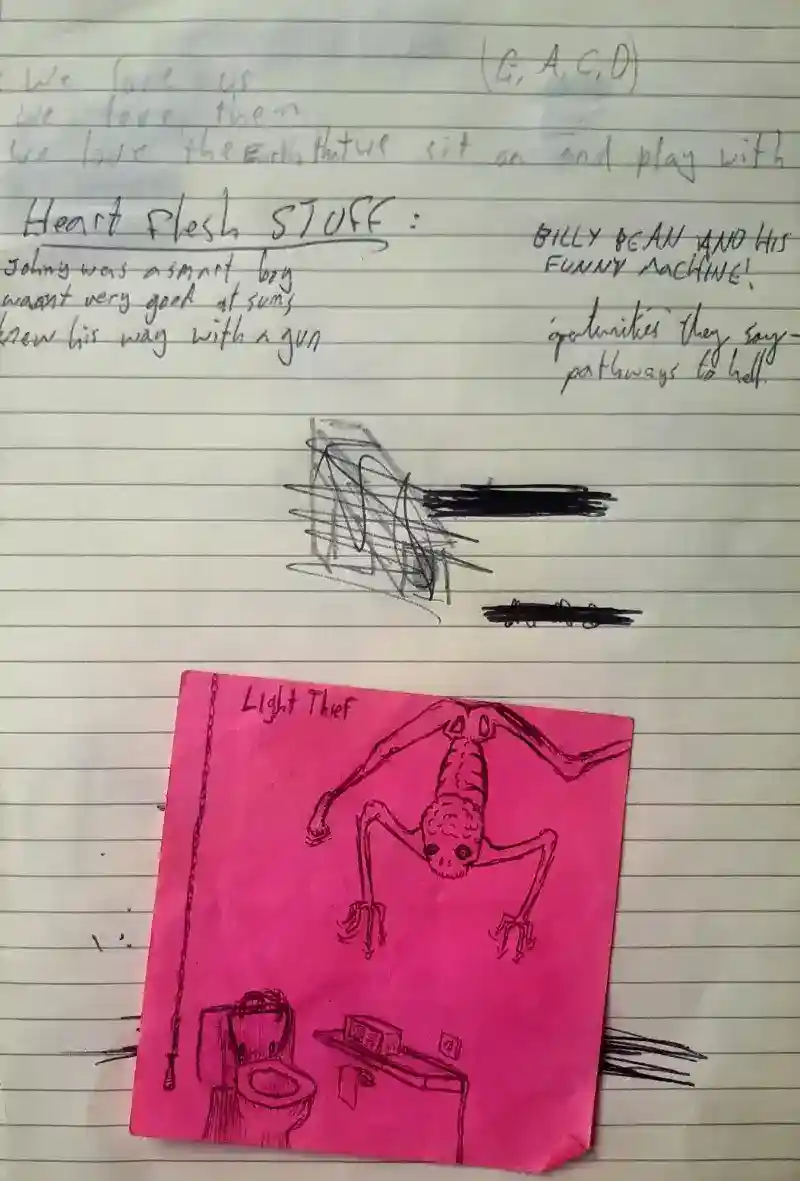 (G, A, C, D)
We love us
we love them
we love the Earth that we sit on and play with
Heart Flesh STUFF:
Johny was a smart boy
wasnt very good at sums
knew his way with a gun
BILLY BEAN AND HIS
FUNNY MACHINE!
'oportunities' they say-
pathways to hell.
Light Thief